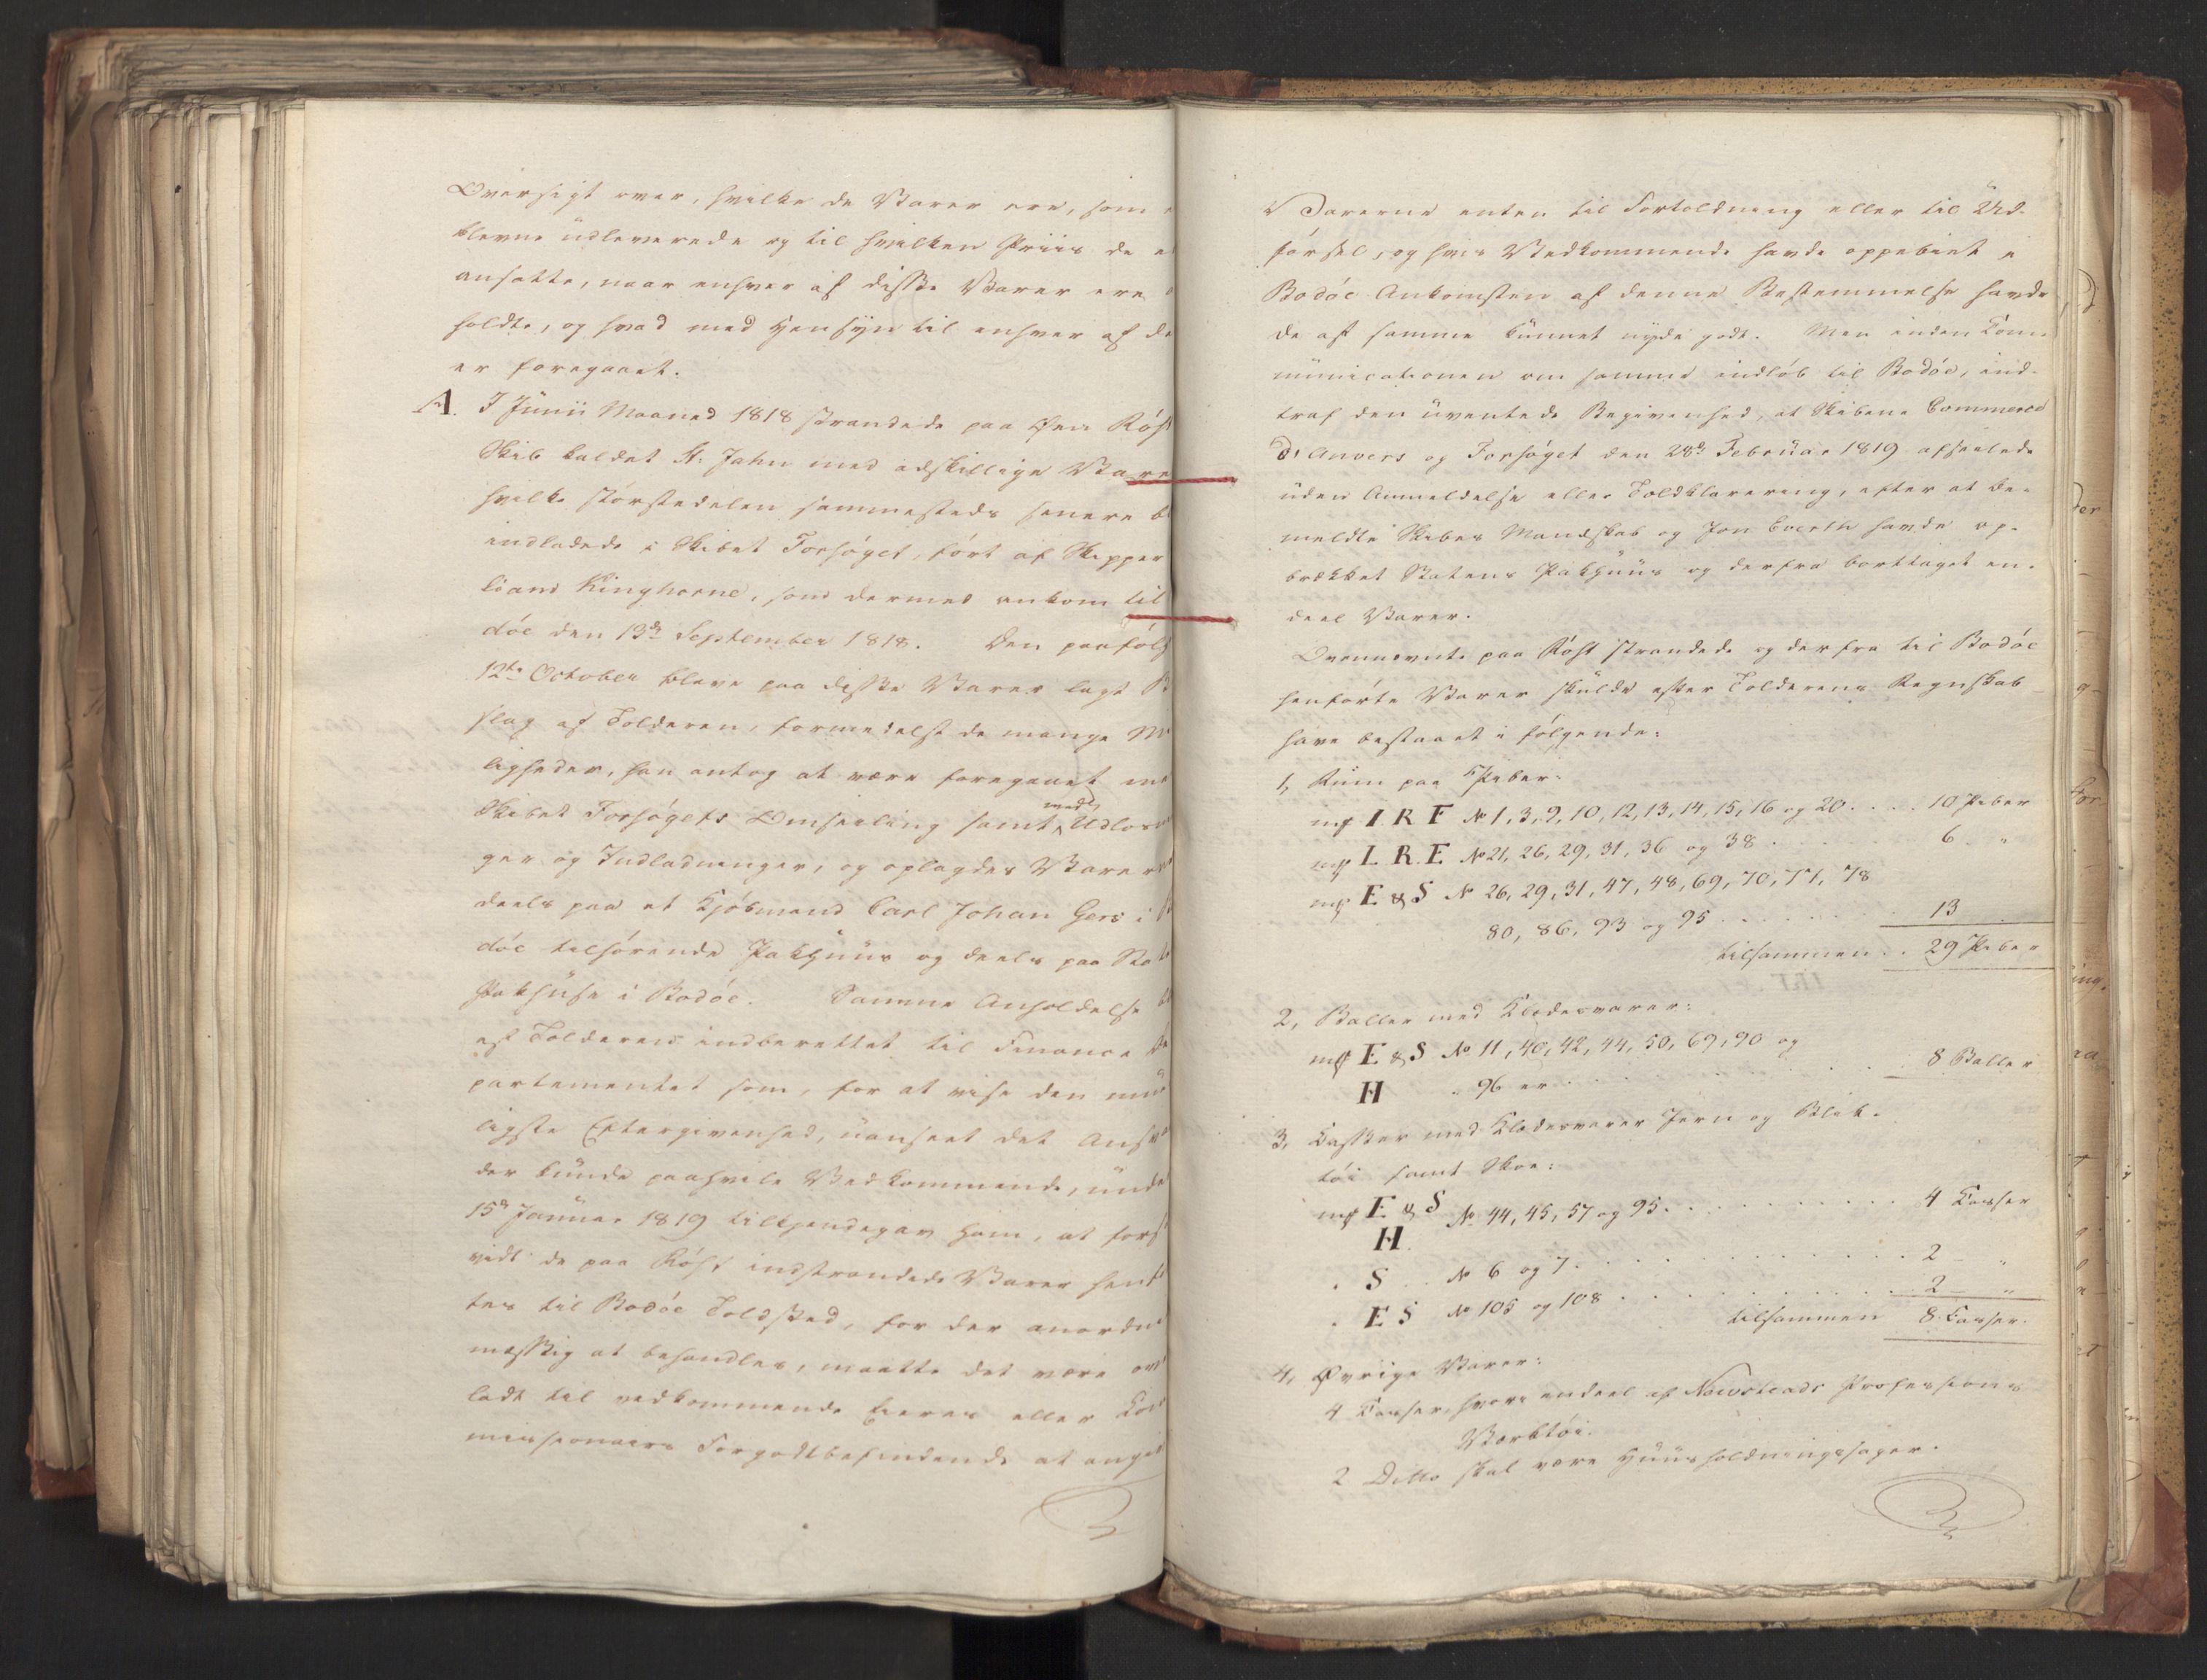 Oversigt over, hvilke de Varer ere, som
blevne udleverede og til hvilken Priis de
ansatte, naar enhver af disse Varer ere
holdte, og hvad med Hensyn til enhver af
er foregaaet.
A. I Junii Maaned 1818 strandede paa Øen Röst
Skib kaldet St. Jahn med adskillige Vare
hvilke störstedelen sammesteds senere
indladede i Skibet Forsöget, fört af Skipper
Kinghorne, som dermed ankom til
döe den 13de September 1818. Den paafölg
12te October bleve paa disse Varer lagt
slag af Tolderen, formedelst de mange
ligheder, han antog at være foregaaet
Skibet Forsögets Omseiling samt med Udlos
ger og Indladninger, og oplagdes Varer
deels paa et Kjöbmand Carl Johan Gers i
döe tilhörende Pakhuus og deels paa
Pakhuse i Bodöe. Samme Anholdelse
af Tolderen indberettet til Finance
partementet som, for at vise den
ligste Eftergivenhed, uanseet det
der kunde paahvile Vedkommende, unde
15de Januar 1819 tilkjendegav ham, at
vidt de paa Röst indstrandede Varer
tes til Bodöe Toldsted, for der anordn
mæssig at behandles, maatte det være
ladt til vedkommende Eieres eller
missionairs Forgodtbefindende at angi
Varerne enten til Fortoldning eller til Ud-
försel, og hvis Vedkommende havde oppebiet i
Bodöe Ankomsten af denne Bestemmelse havde
de af samme kunnet nyde godt. Men inden Com-
municationen om samme indlöb til Bodöe, ind-
traf den uventede Begivenhed, at Skibene Commerce
d'Anvers og Forsöget den 28de Februar 1819 afseilede
uden Anmeldelse eller Toldklarering, efter at be-
meldte Skibes Mandskab og Jon Everth havde op-
brækket Statens Pakhuus og derfra borttaget en-
deel Varer.
Ovennævnte paa Röst strandede og derfra til Bodöe
henförte Varer skulde efter Tolderens Regnskab
have bestaaet i fölgende:
1, Rum paa Piber:
mp I R F No 1, 3, 9, 10, 12, 13, 14, 15, 16 og 20 . . . . 10 Piber
mp I. R. E No 21, 26, 29, 31, 36 og 38 . . . . 6 "
mp E & S No 26, 29, 31, 47, 48, 69, 70, 77, 78
80, 86, 93 og 95 . . . . . . 13
tilsammen . . 29 Piber
2, Baller med Klædesvarer:
mp E & S No 11, 40, 42, 44, 50, 69, 90 og
H 96 er . . . . . . . 8 Baller
3, Casser med Klædesvarer Jern og Blik-
töi samt Skoe:
mp E & S No 44, 45, 57 og 95 . . . . . . . 4 Casser
H.
. S . . No 6 og 7 . . . . . . . . . 2 "
. E S No 105 og 108 . . . . . . . . . 2 "
tilsammen 8 Casser.
4, Øvrige Varer:
4 Casser, hvori endeel af Newsteads Professions
Værktöi.
2 Ditto skal være Huusholdningssager.